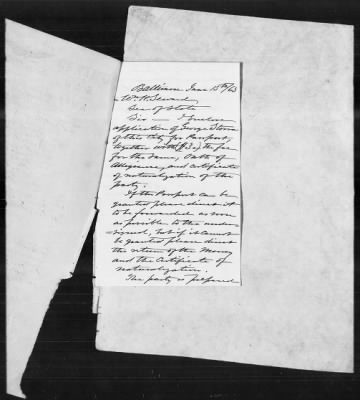 Baltimore June 15th/63
Wm H. Seward
Sec of State
Sir — I enclose
application of George
of this City for Passport,
together with ($3) the fee
for the same, Oath of
Allegiance, and certificate
of naturalization of the
party.
If the Passport can be
granted please direct it
to be forwarded as soon
as possible to the under-
=signed, but if it cannot
be granted please direct
the return of the Money
and the Certificate of
naturalization.
The party is prepared